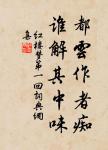 都云作者痴
誰解其中味
红楼梦第一回詞典網
集